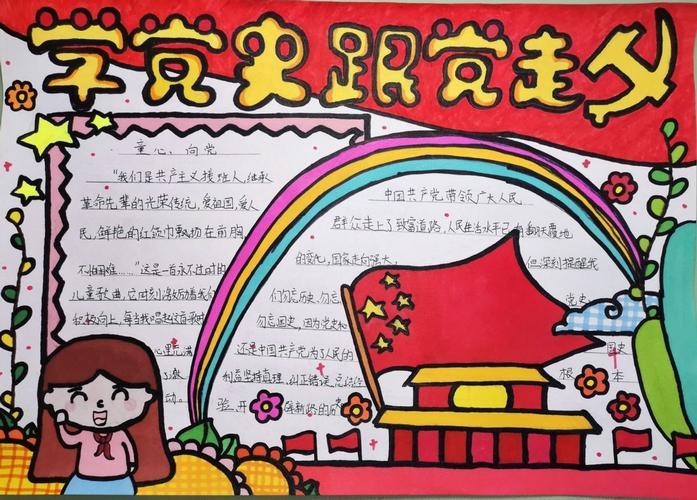 学党史跟党走
童心、向党
"我们是共产主义接班人,继承
革命先辈的光荣传统,爱祖国,爱人
民,鲜艳的红领巾飘扬在前胸,
不怕困难……"这是一首永不过时的
儿童歌曲,它时刻激励着我们
积极向上,每当我唱起这首歌时
心里充满
了激
动。
中国共产党带领广大人民
群众走上了致富道路,人民生活水平已有翻天覆地
的变化,国家走向强大, 但深刻提醒我
们勿忘历史,勿忘 党史
勿忘国史,因为党史和 国史
还是中国共产党为了人民的 根本
利益坚持真理,纠正错误,总结经
验,开 新路的历史